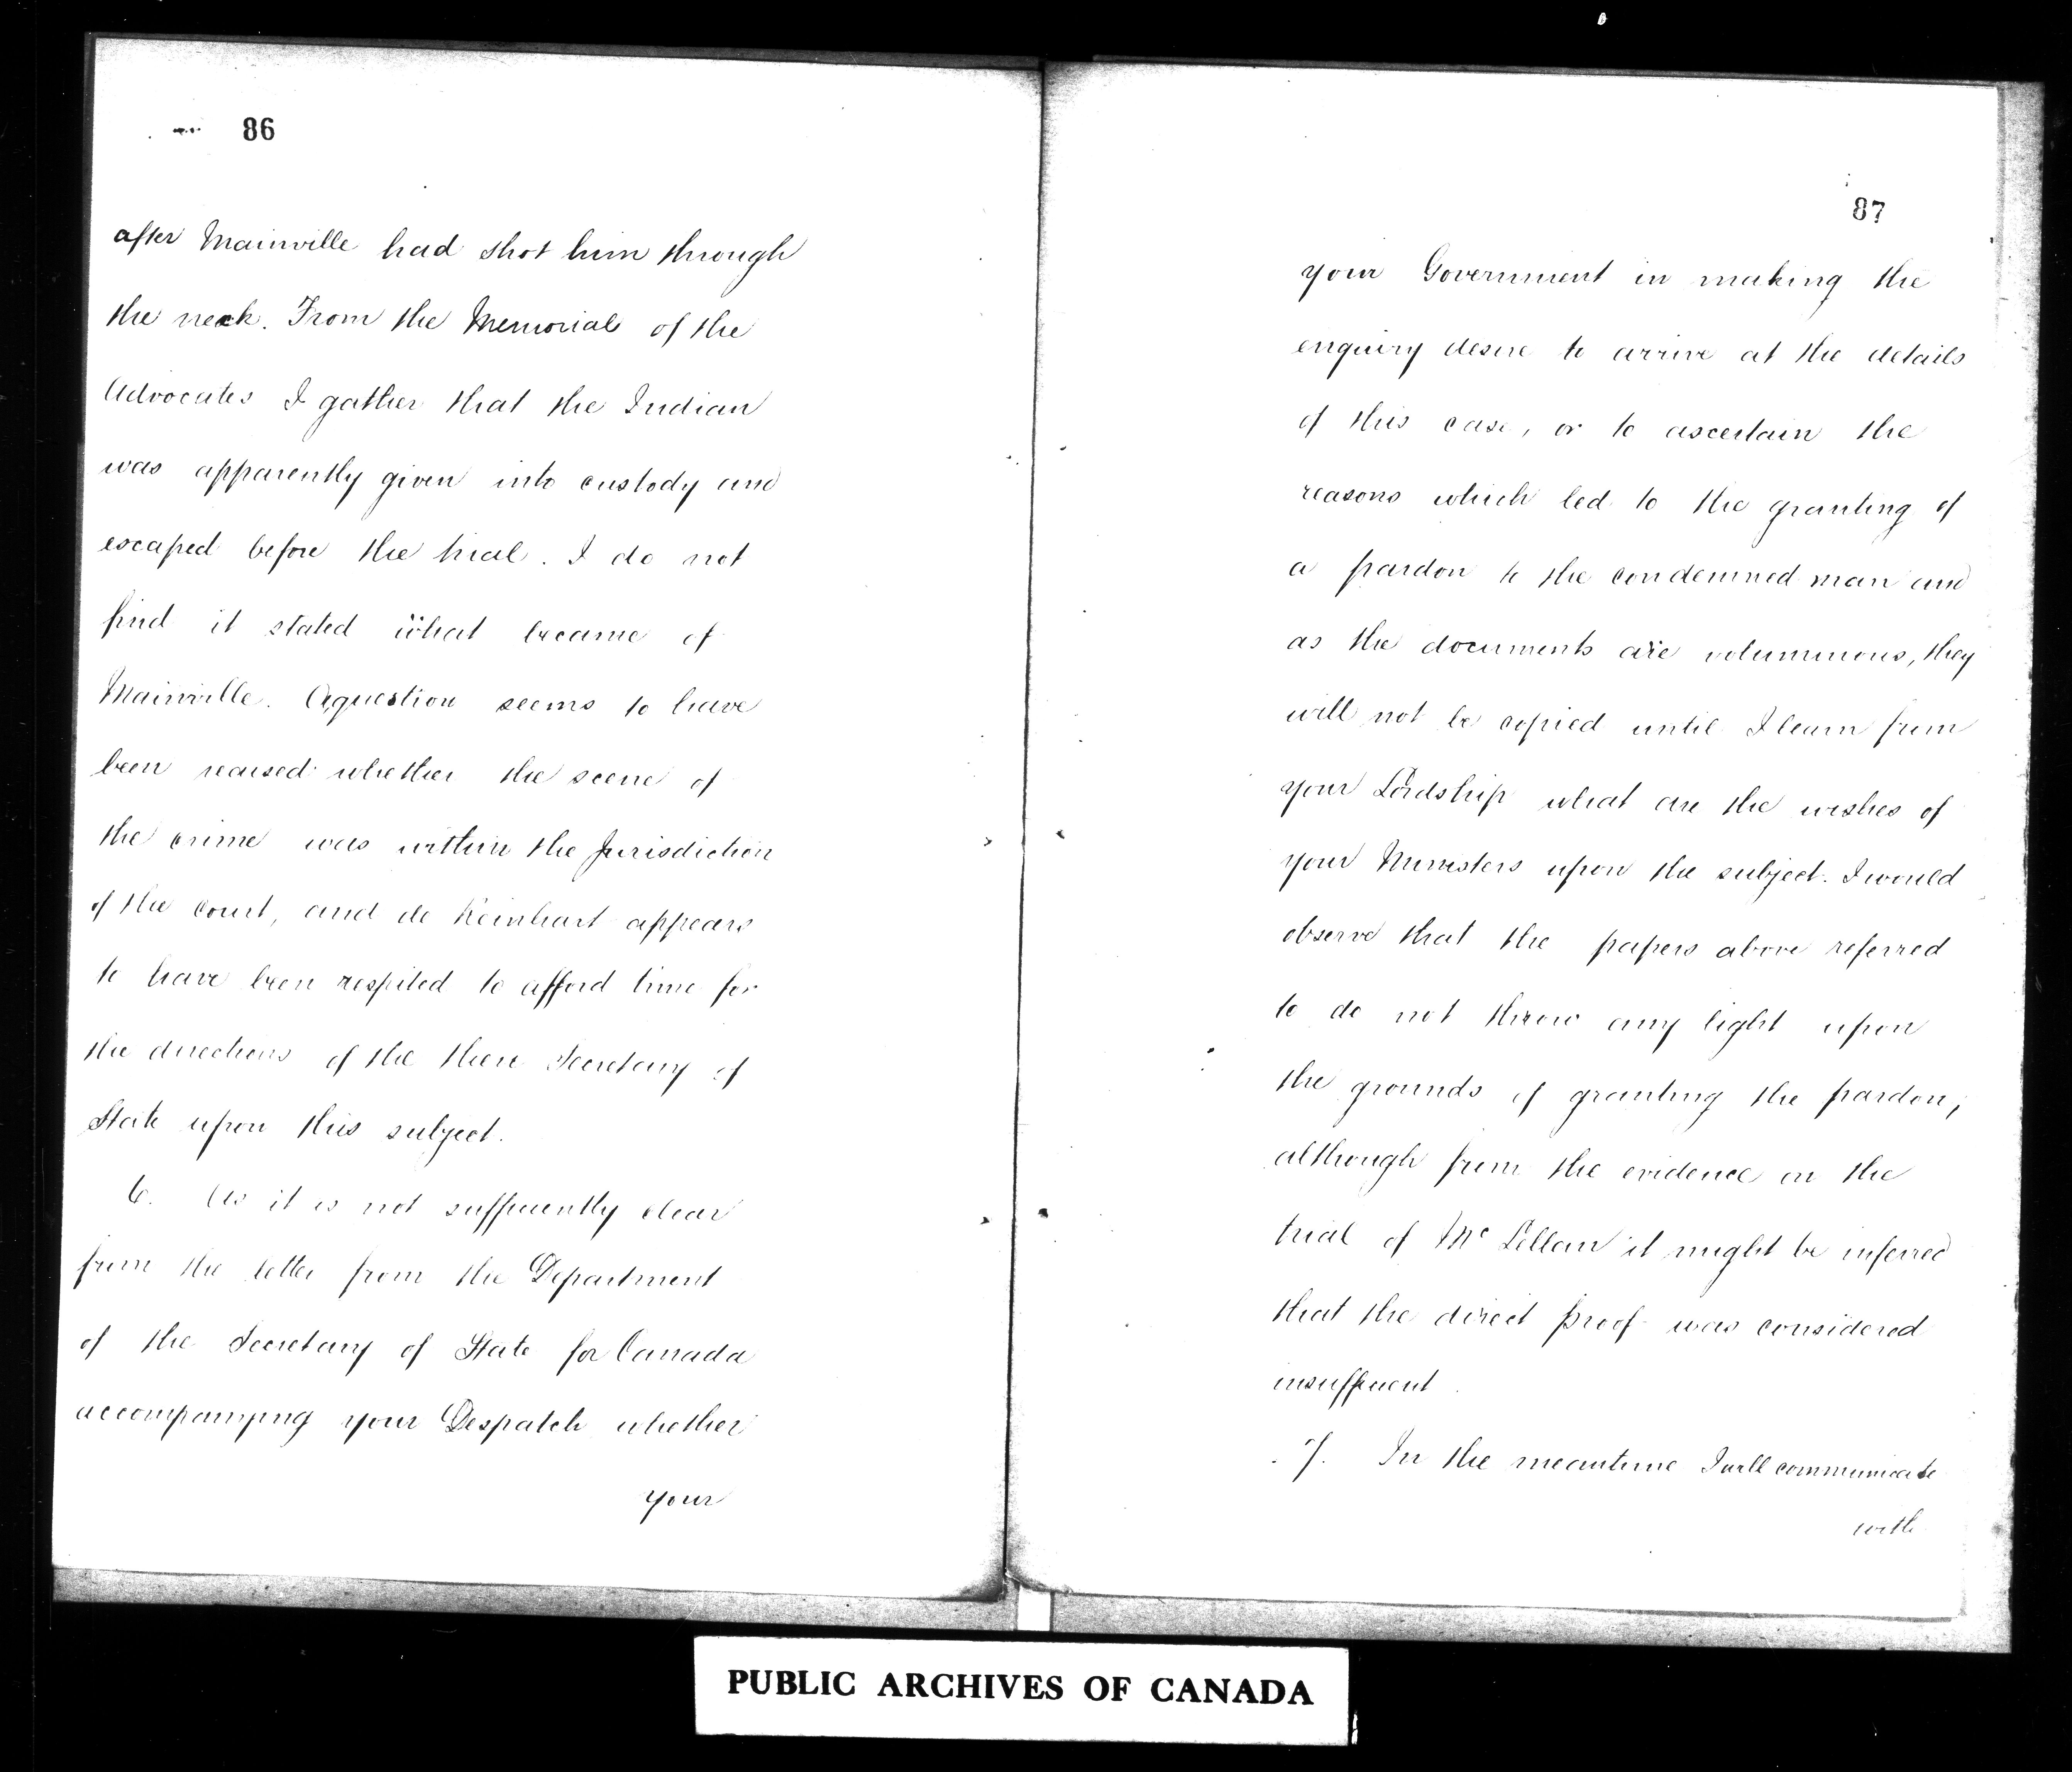 86
after Mainville had shot him through
the neck. From the Memorial of the
Advocates I gather that the Indian
was apparently given into custody and
escaped before the trial. I do not
find it stated what became of
Mainville. A question seems to have
been raised whether the scene of
the crime was within the Jurisdiction
of the court, and de Reinhart appears
to have been respited to afford time for
the directions of the then Secretary of
State upon this subject.
6. As it is not sufficiently clear
from the letter from the Department
of the Secretary of State for Canada
accompanying your Despatch whether
your
87
your Government in making the
enquiry desire to arrive at the details
of this case, or to ascertain the
reasons which led to the granting of
a pardon to the condemned man and
as the documents are voluminous, they
will not be copied until I learn from
your Lordship what are the wishes of
your Ministers upon the subject. I would
observe that the papers above referred
to do not throw any light upon
the grounds of granting the pardon,
although from the evidence on the
trial of Mc Lellan it might be inferred
that the direct proof was considered
insufficient.
7. In the meantime I will communicate
with
PUBLIC ARCHIVES OF CANADA